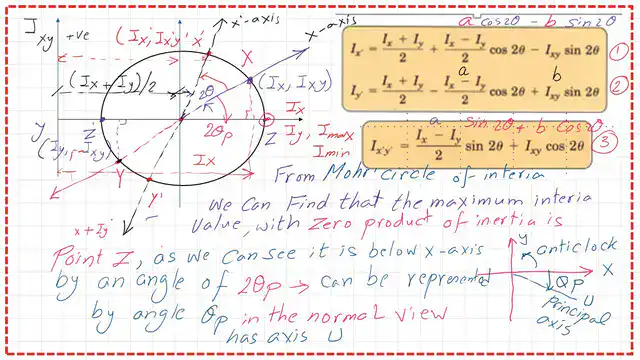 a cos2θ - b sin2θ
Ixy +ve
x'-axis
X-axis
(Ix', Ix'y' x'
Ix' = Ix + Iy / 2 + Ix - Iy / 2 cos 2θ - Ixy sin 2θ
1
(Ix + Iy)/2
2θ
X
(Ix, Ixy)
a
b
Iy' = Ix + Iy / 2 - Ix - Iy / 2 cos 2θ + Ixy sin 2θ
2
Ix
y
Z'
2θp
Z
Iy, Imax
Imin
a
Sin 2θ + b Cos2θ
Ix'y' = Ix - Iy / 2 sin 2θ + Ixy cos 2θ
3
(Iy, -Ixy)
Y
Ix
Y'
From Mohr'circle of interia
x + Iy
we Can Find that the maximum interia
Value, with Zero product of inertia is
Point Z, as we can see it is below x-axis
by an angle of 2θp → can be represented
by angle θp in the normal view
has axis U
y
anticlock
X
θp
U
principal
axis